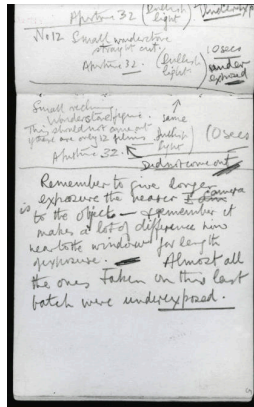 Aperture 32 (Dullish light) Underexp
No 12 Small understone
straight out.
Aperture 32. (Dullish light) 10 secs
underexposed
Small reclining
same
This should not come out
there are only 12 films
Dullish light) 10 secs
Aperture 32.
Did not come out
Remember to give longer
exposure the nearer camera
is to the object — & remember it
makes a lot of difference how
near to the window for length
of exposure. Almost all
the ones taken on this last
batch were underexposed.